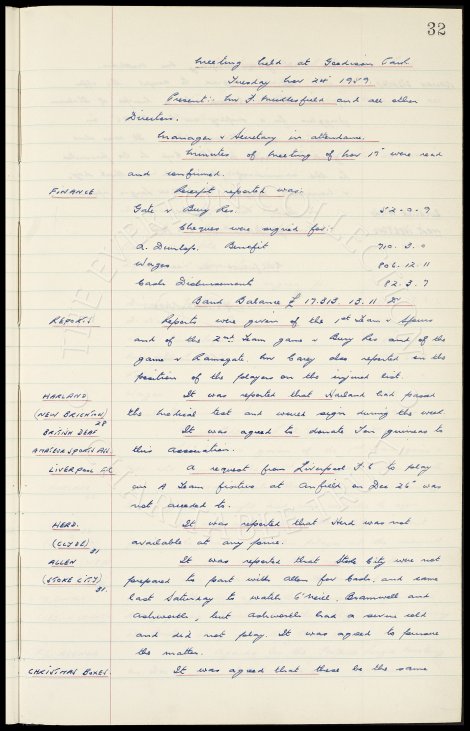 32
Meeting held at Goodison Park
Tuesday Nov 24th 1959.
Present:- Mr F. Micklesfield and all other
Directors.
Manager & Secretary in attendance.
Minutes of Meeting of Nov 17th were read
and confirmed.
FINANCE Receipt reported was:
Gate v Bury Res. 52-0-9
Cheques were signed for:-
A. Dunlop. Benefit 710. 3. 0
Wages 806. 12. 11
Cash Disbursements 82. 3. 7
Bank Balance £ 17.313. 13. 11 Dr
REPORTS Reports were given of the 1st Team v Spurs
and of the 2nd Team game v Bury Res and of the
game v Ramsgate. Mr Carey also reported on the
position of the players on the injured list.
HARLAND It was reported that Harland had passed
(NEW BRIGHTON) 28 the medical test and would sign during the week
BRITISH DEAF It was agreed to donate Ten guineas to
AMATEUR SPORTS ASS. this Association.
LIVERPOOL F.C. A request from Liverpool F.C to play
our A Team fixture at Anfield on Dec 26th was
not acceded to.
HERD. It was reported that Herd was not
(CLYDE) 31 available at any price.
ALLEN It was reported that Stoke City were not
(STOKE CITY) 31. prepared to part with Allen for Cash, and came
last Saturday to watch O'Neill, Bramwell and
Ashworth, but Ashworth had a severe cold
and did not play. It was agreed to pursue
the matter.
CHRISTMAS BOXES. It was agreed that these be the same
THE EVERTON COLLECTION
CHARITABLE TRUST